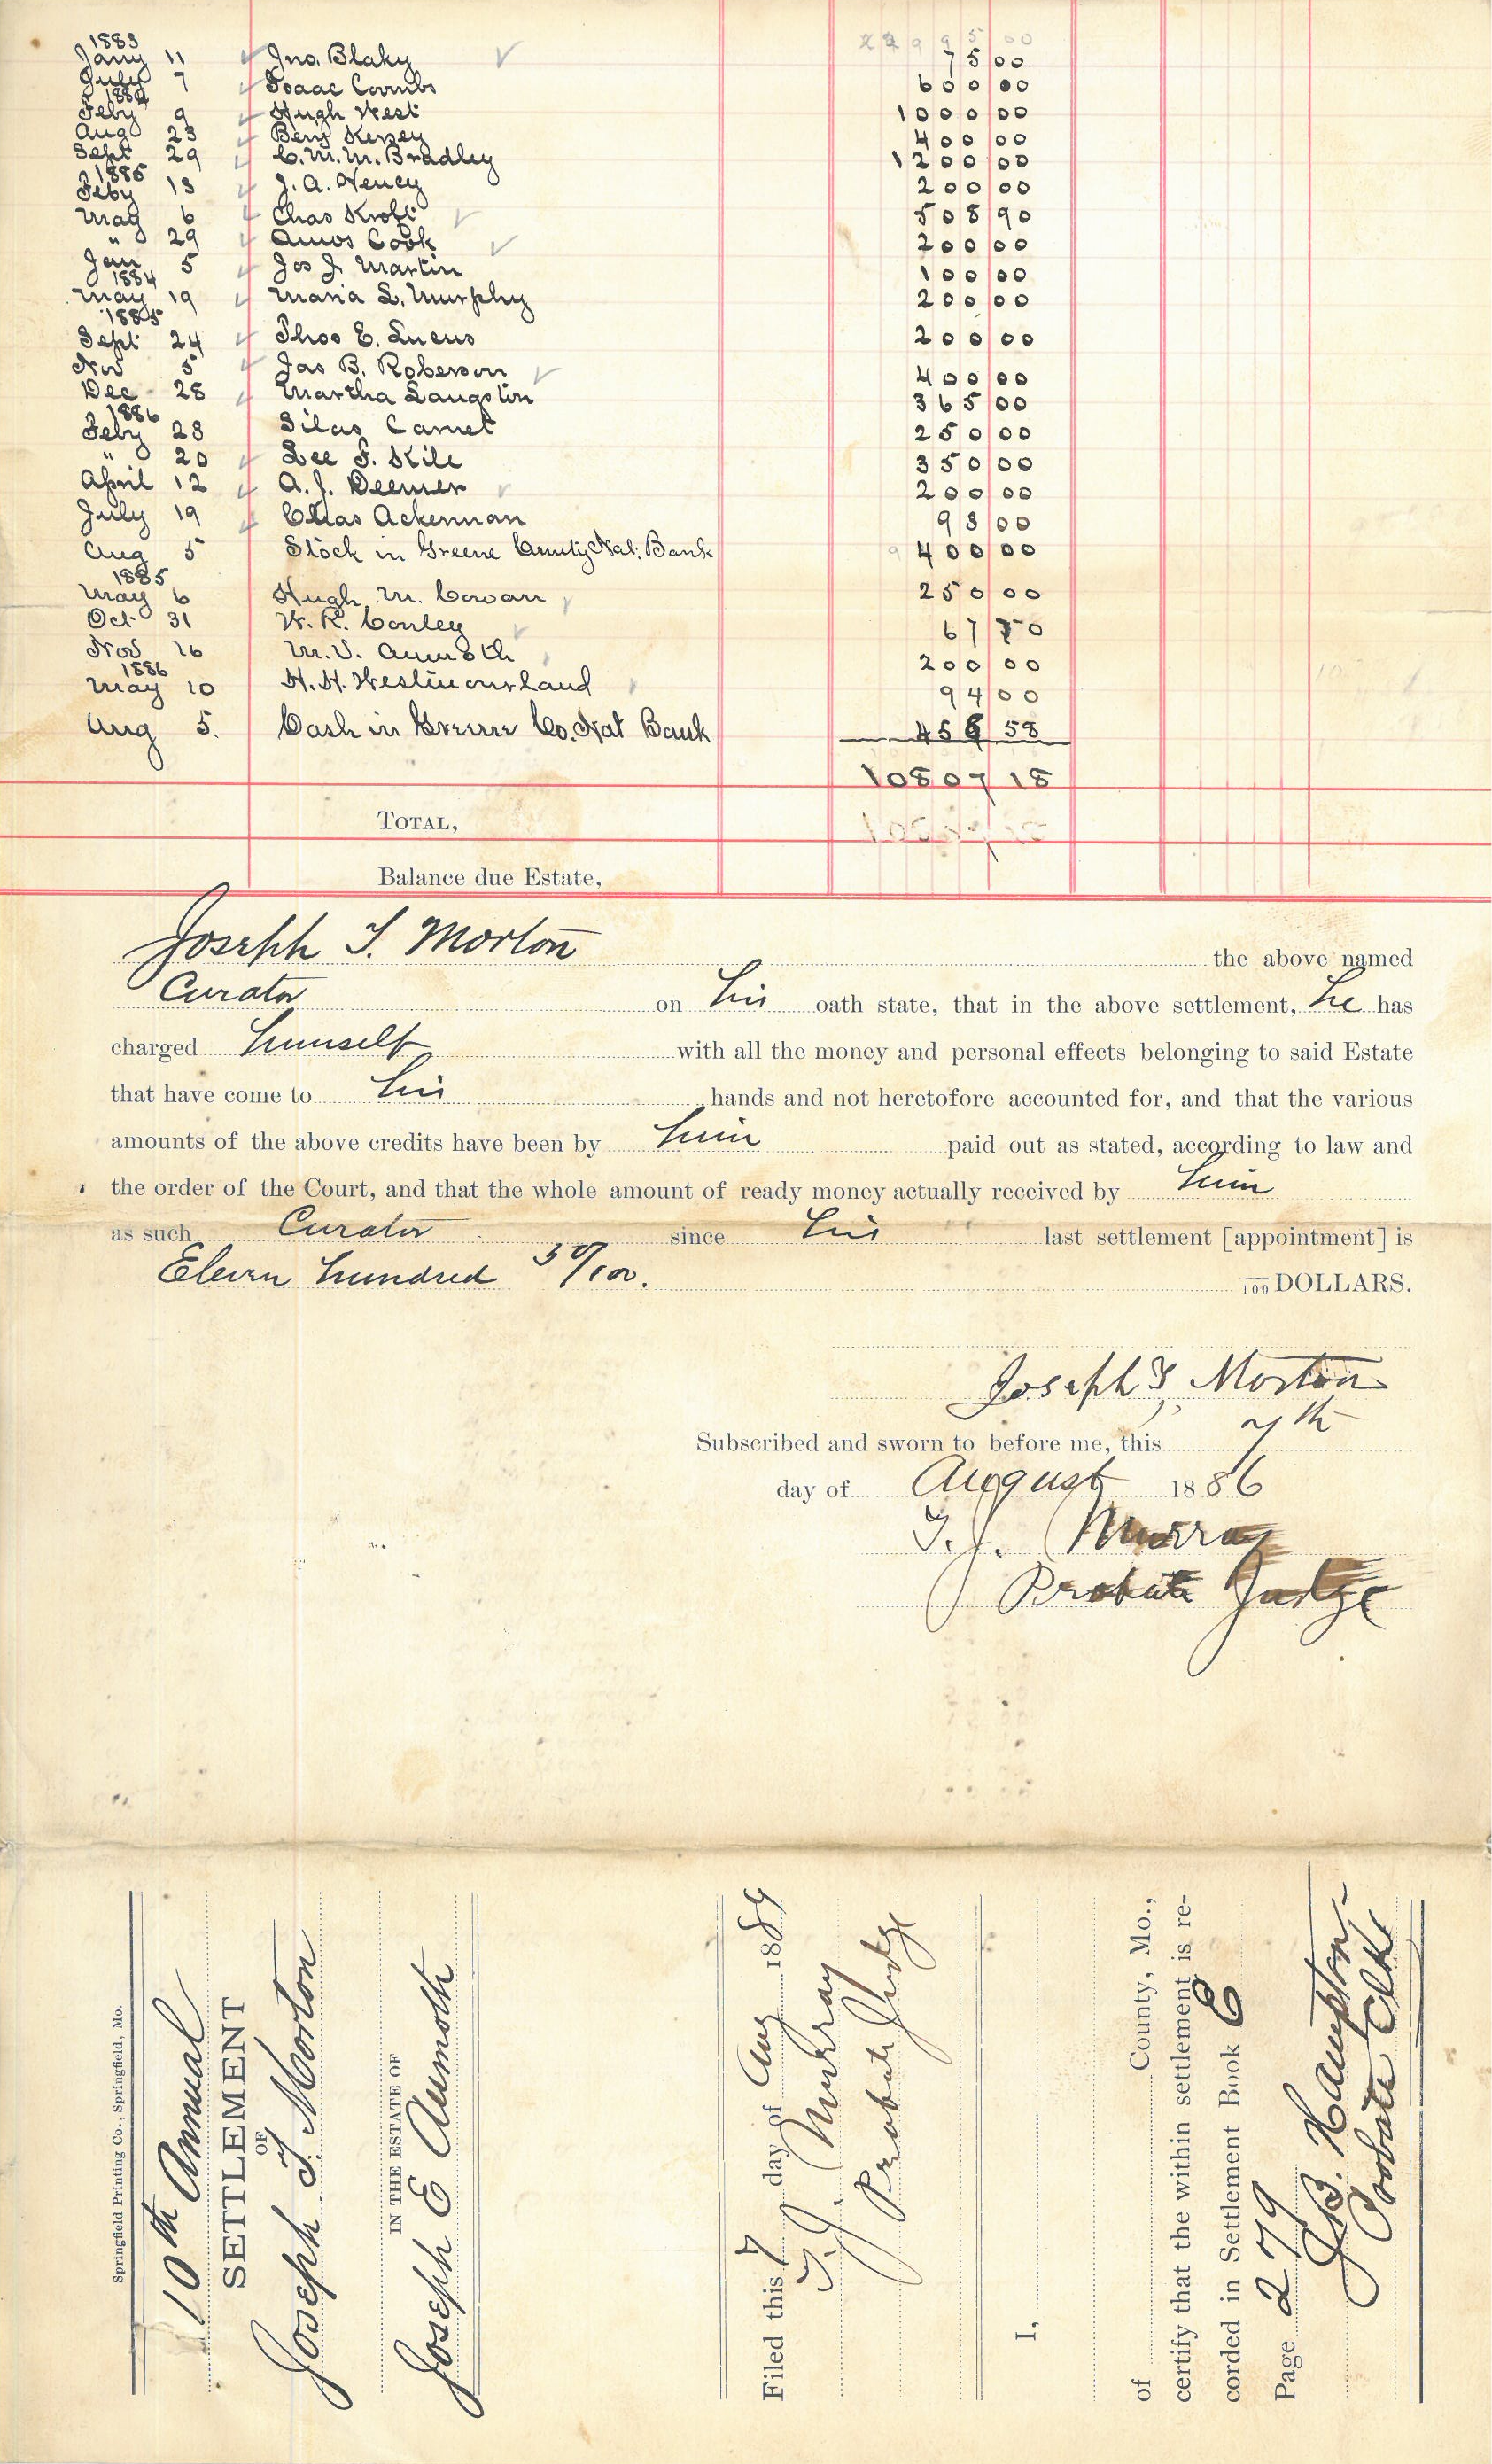 1883
Jany 11 Jno. Blaky 75 00
July 7 Isaac Coombs 600 00
1884
Feby 9 Hugh West 1000 00
Aug 23 Benj Kersey 400 00
Sept 29 C. M. M. Bradley 1200 00
1885
Feby 13 J. A. Hency 200 00
May 6 Chas Kroft 508 90
" 29 Amos Cook 200 00
Jan 5 Jos J. Martin 100 00
1884
May 19 Maria L. Murphy 200 00
1885
Sept 24 Thos E. Lucus 200 00
Nov 5 Jas B. Roberson 400 00
Dec 28 Martha Langston 365 00
1886
Feby 23 Silas Camet 250 00
" 20 Lee F. Kile 350 00
April 12 A. J. Deemer 200 00
July 19 Chas Ackerman 98 00
Aug 5 Stock in Greene County Nat. Bank 400 00
1885
May 6 Hugh M. Cowan 250 00
Oct 31 W. R. Conley 67 70
Nov 16 M. V. Aumoth 200 00
1886
May 10 H. H. Westmourland 94 00
Aug 5. Cash in Greene Co. Nat Bank 458 58
10807 18
TOTAL,
Balance due Estate,
Joseph T. Morton the above named
Curator on his oath state, that in the above settlement, he has
charged himself with all the money and personal effects belonging to said Estate
that have come to his hands and not heretofore accounted for, and that the various
amounts of the above credits have been by him paid out as stated, according to law and
the order of the Court, and that the whole amount of ready money actually received by him
as such Curator since his last settlement [appointment] is
Eleven hundred 30/100. 100 DOLLARS.
Joseph T. Morton
Subscribed and sworn to before me, this 7th
day of August 1886
T. J. Murray
Probate Judge
Springfield Printing Co., Springfield, Mo.
10th Annual
SETTLEMENT
OF
Joseph T. Morton
IN THE ESTATE OF
Joseph E Aumoth
Filed this 7 day of Aug 1889
T. J. Murray
Probate Judge
I,
of County, Mo.,
certify that the within settlement is re-
corded in Settlement Book E
Page 279
J. B. Hampton
Probate Clk